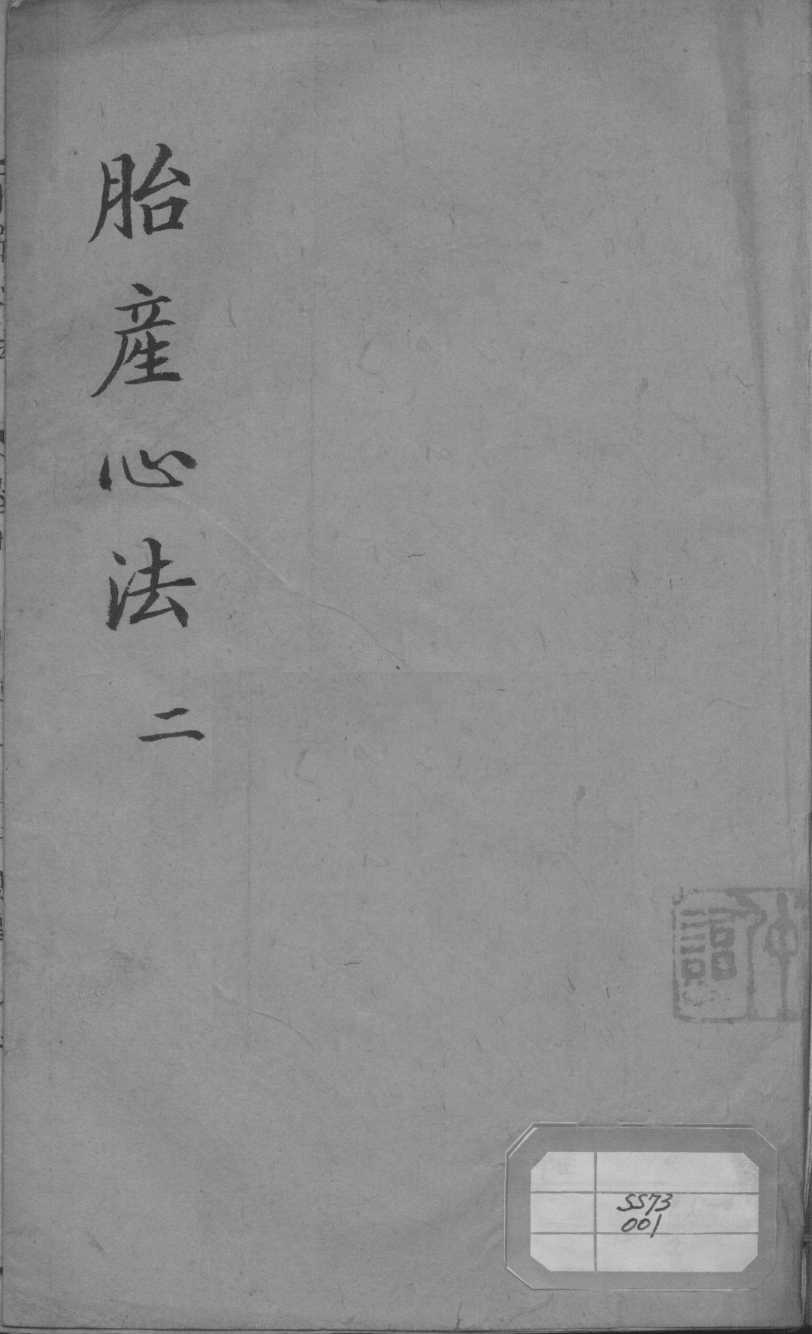 胎產心法 二
SS73
001